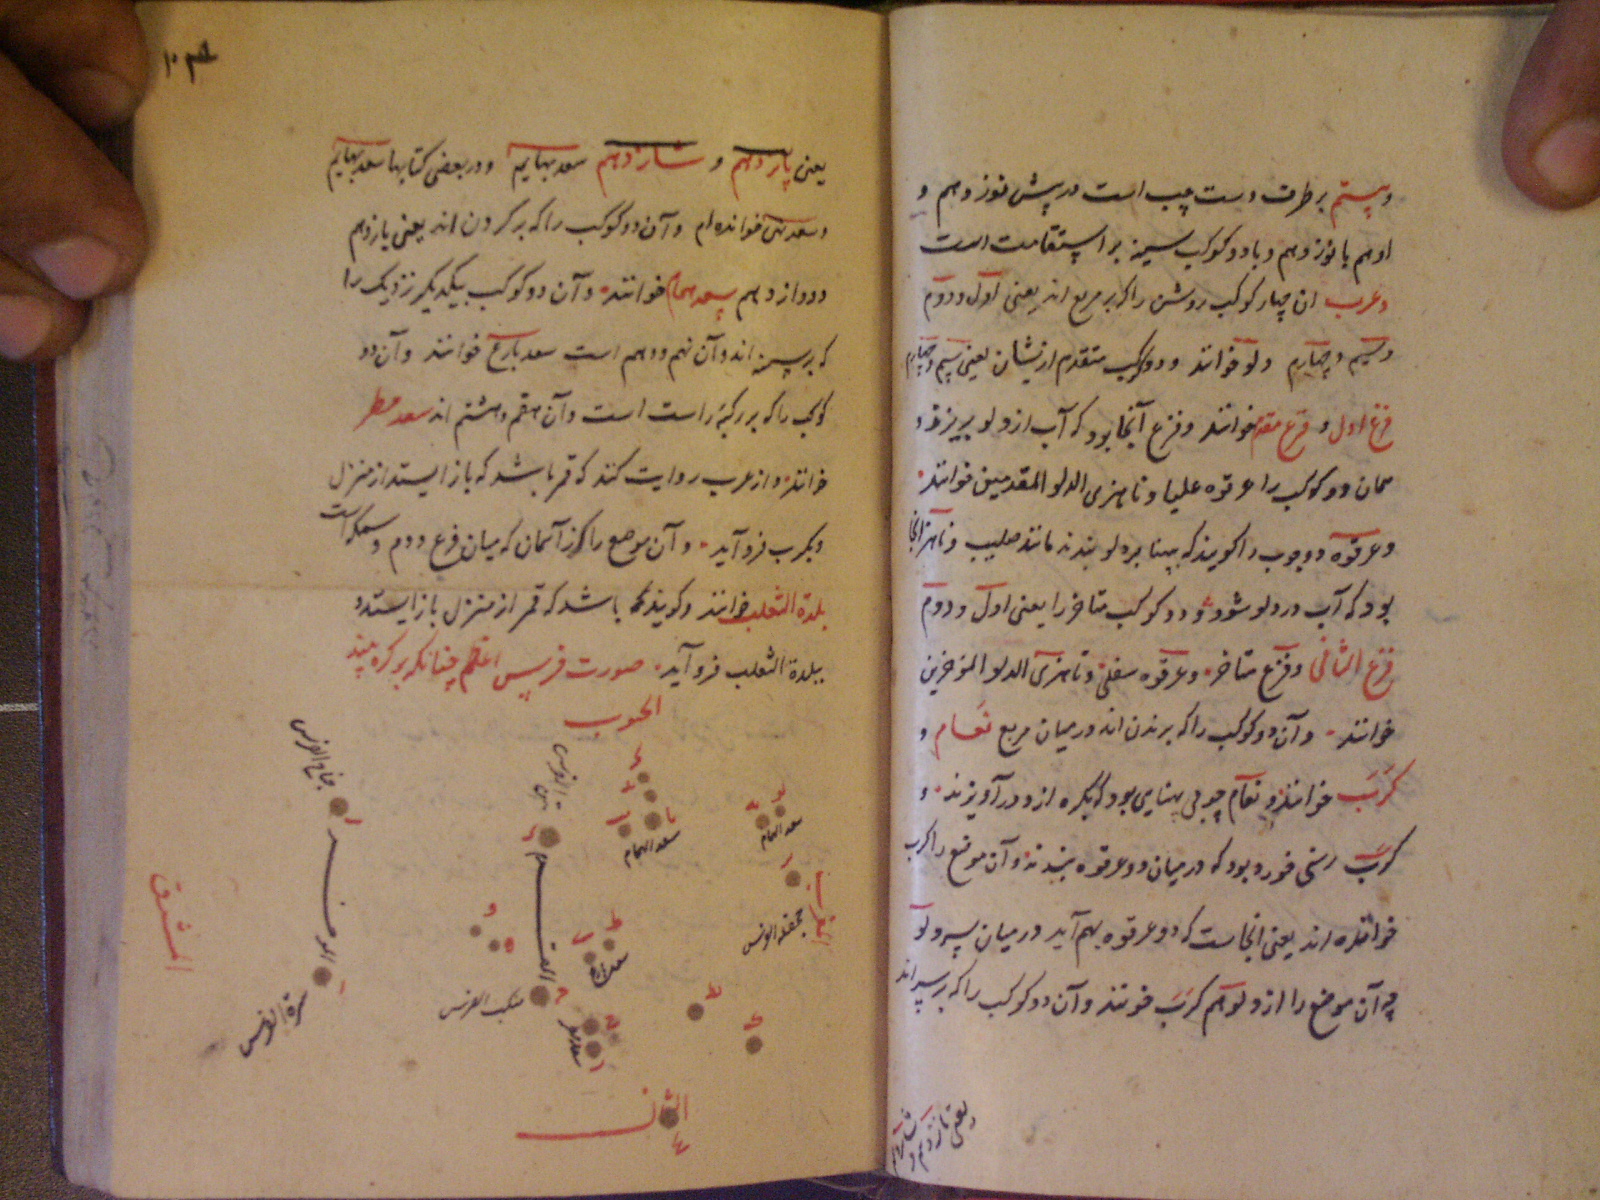 و بیستم بر طرف دست چپ است در پیش نوزدهم و
او هم با نوزدهم و با دو کوکب سینه بر استقامت است
و عرب این چهار کوکب روشن را که بر مربع اند یعنی اول و دوم
و سیم و چهارم دلو خوانند و دو کوکب متقدم ازیشان یعنی سیم و چهارم
فرغ اول و فرغ مقدم خوانند و فرغ آنجا بود که آب از دلو بریزد و
همان دو کوکب را عرقوه علیا و ناهزی الدلو المقدمین خوانند
و عرقوه دو چوب را گویند که بر دلو بندند مانند صلیب و ناهز آنجا
بود که آب در دلو شود و دو کوکب متاخر را یعنی اول و دوم
فرغ الثانی و فرغ متاخر و عرقوه سفلی و ناهزی الدلو المؤخرین
خوانند و آن دو کوکب را که بر بدن اند در میان مربع نعام و
کرب خوانند و نعام چوبی بود که بکره ازو درآویزند و
کرب رسنی بود که در میان دو عرقوه بندند و آن موضع را کرب
خوانده اند یعنی آنجاست که دو عرقوه بهم آید در میان سر دلو
چه آن موضع را از دلو هم کرب خوانند و آن دو کوکب را که بر سر اند
یعنی پانزدهم و شانزدهم
یعنی پانزدهم و شانزدهم سعد بهایم و در بعضی کتابها سعد بهایم
خوانده ام و آن دو کوکب را که بر گردن اند یعنی یازدهم
و دوازدهم سعد همام خوانند و آن دو کوکب بیکدیگر نزدیک را
که بر سینه اند و آن نهم و دهم است سعد بارع خوانند و آن دو
کوکب را که بر رکبه راست است و آن هفتم و هشتم اند سعد مطر
خوانند و از عرب روایت کنند که قمر باشد که باز ایستد از منزل
و بکرب فرو آید و آن موضع را از آسمان که میان فرغ دوم و سمکه است
بلدة الثعلب خوانند و گویند گاه باشد که قمر از منزل باز ایستد و
ببلدة الثعلب فرو آید صورت فرس اعظم چنانکه بر کره بینند
الجنوب
جناح الفرس
متن الفرس
سعد الهمام
سعد البهام
جحفلة الفرس
المغرب
المشرق
منکب الفرس
سعد بارع
سعد مطر
سرة الفرس
الشمال